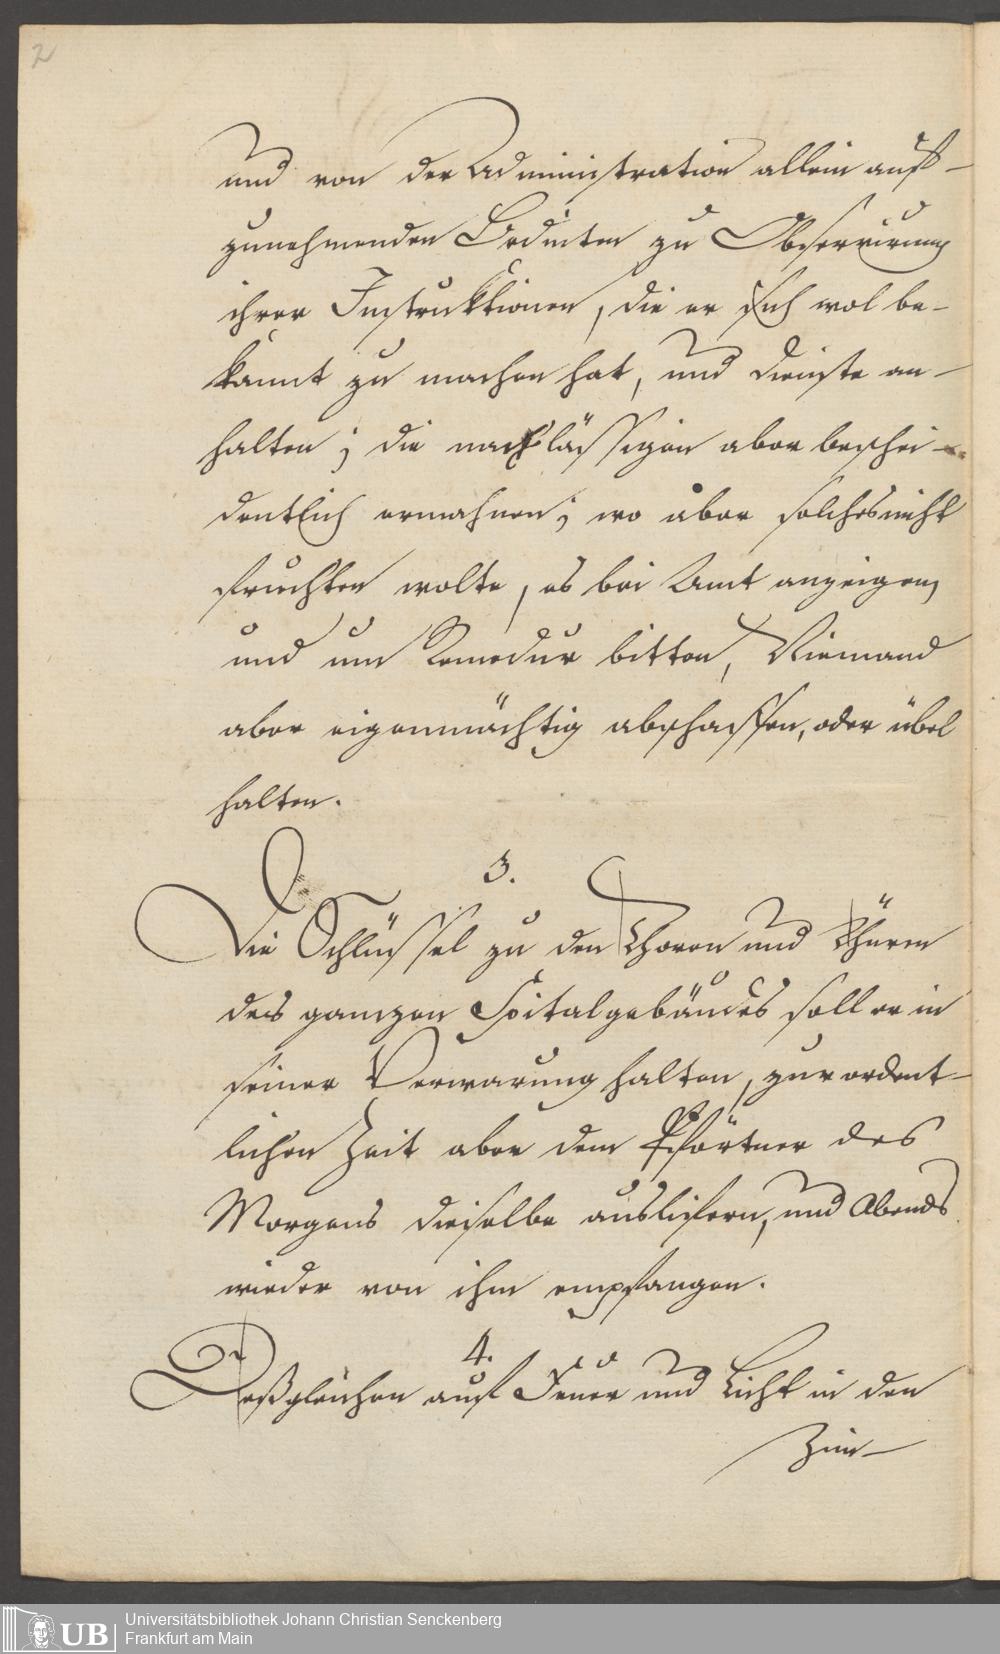 2
und von der Administration allein auf-
zunehmenden Bedienten zu Observirung
ihrer Instruktionen, die er sich wol be-
kannt zu machen hat, und Dienste an-
halten; die nachlässigen aber beschei-
dentlich ermahnen; wo aber solches nicht
fruchten wolte, es bei Amt anzeigen,
und um Remedur bitten, Niemand
aber eigenmächtig abschaffen, oder übel
halten.
3.
Die Schlüssel zu den Thoren und Thüren
des ganzen Spitalgebäudes soll er in
seiner Verwarung halten, zur ordent-
lichen Zeit aber dem Pförtner des
Morgens dieselbe ausliefern, und Abends
wieder von ihm empfangen.
4.
Deßgleichen auf Feuer und Licht in den
Zim-
UB Universitätsbibliothek Johann Christian Senckenberg
Frankfurt am Main